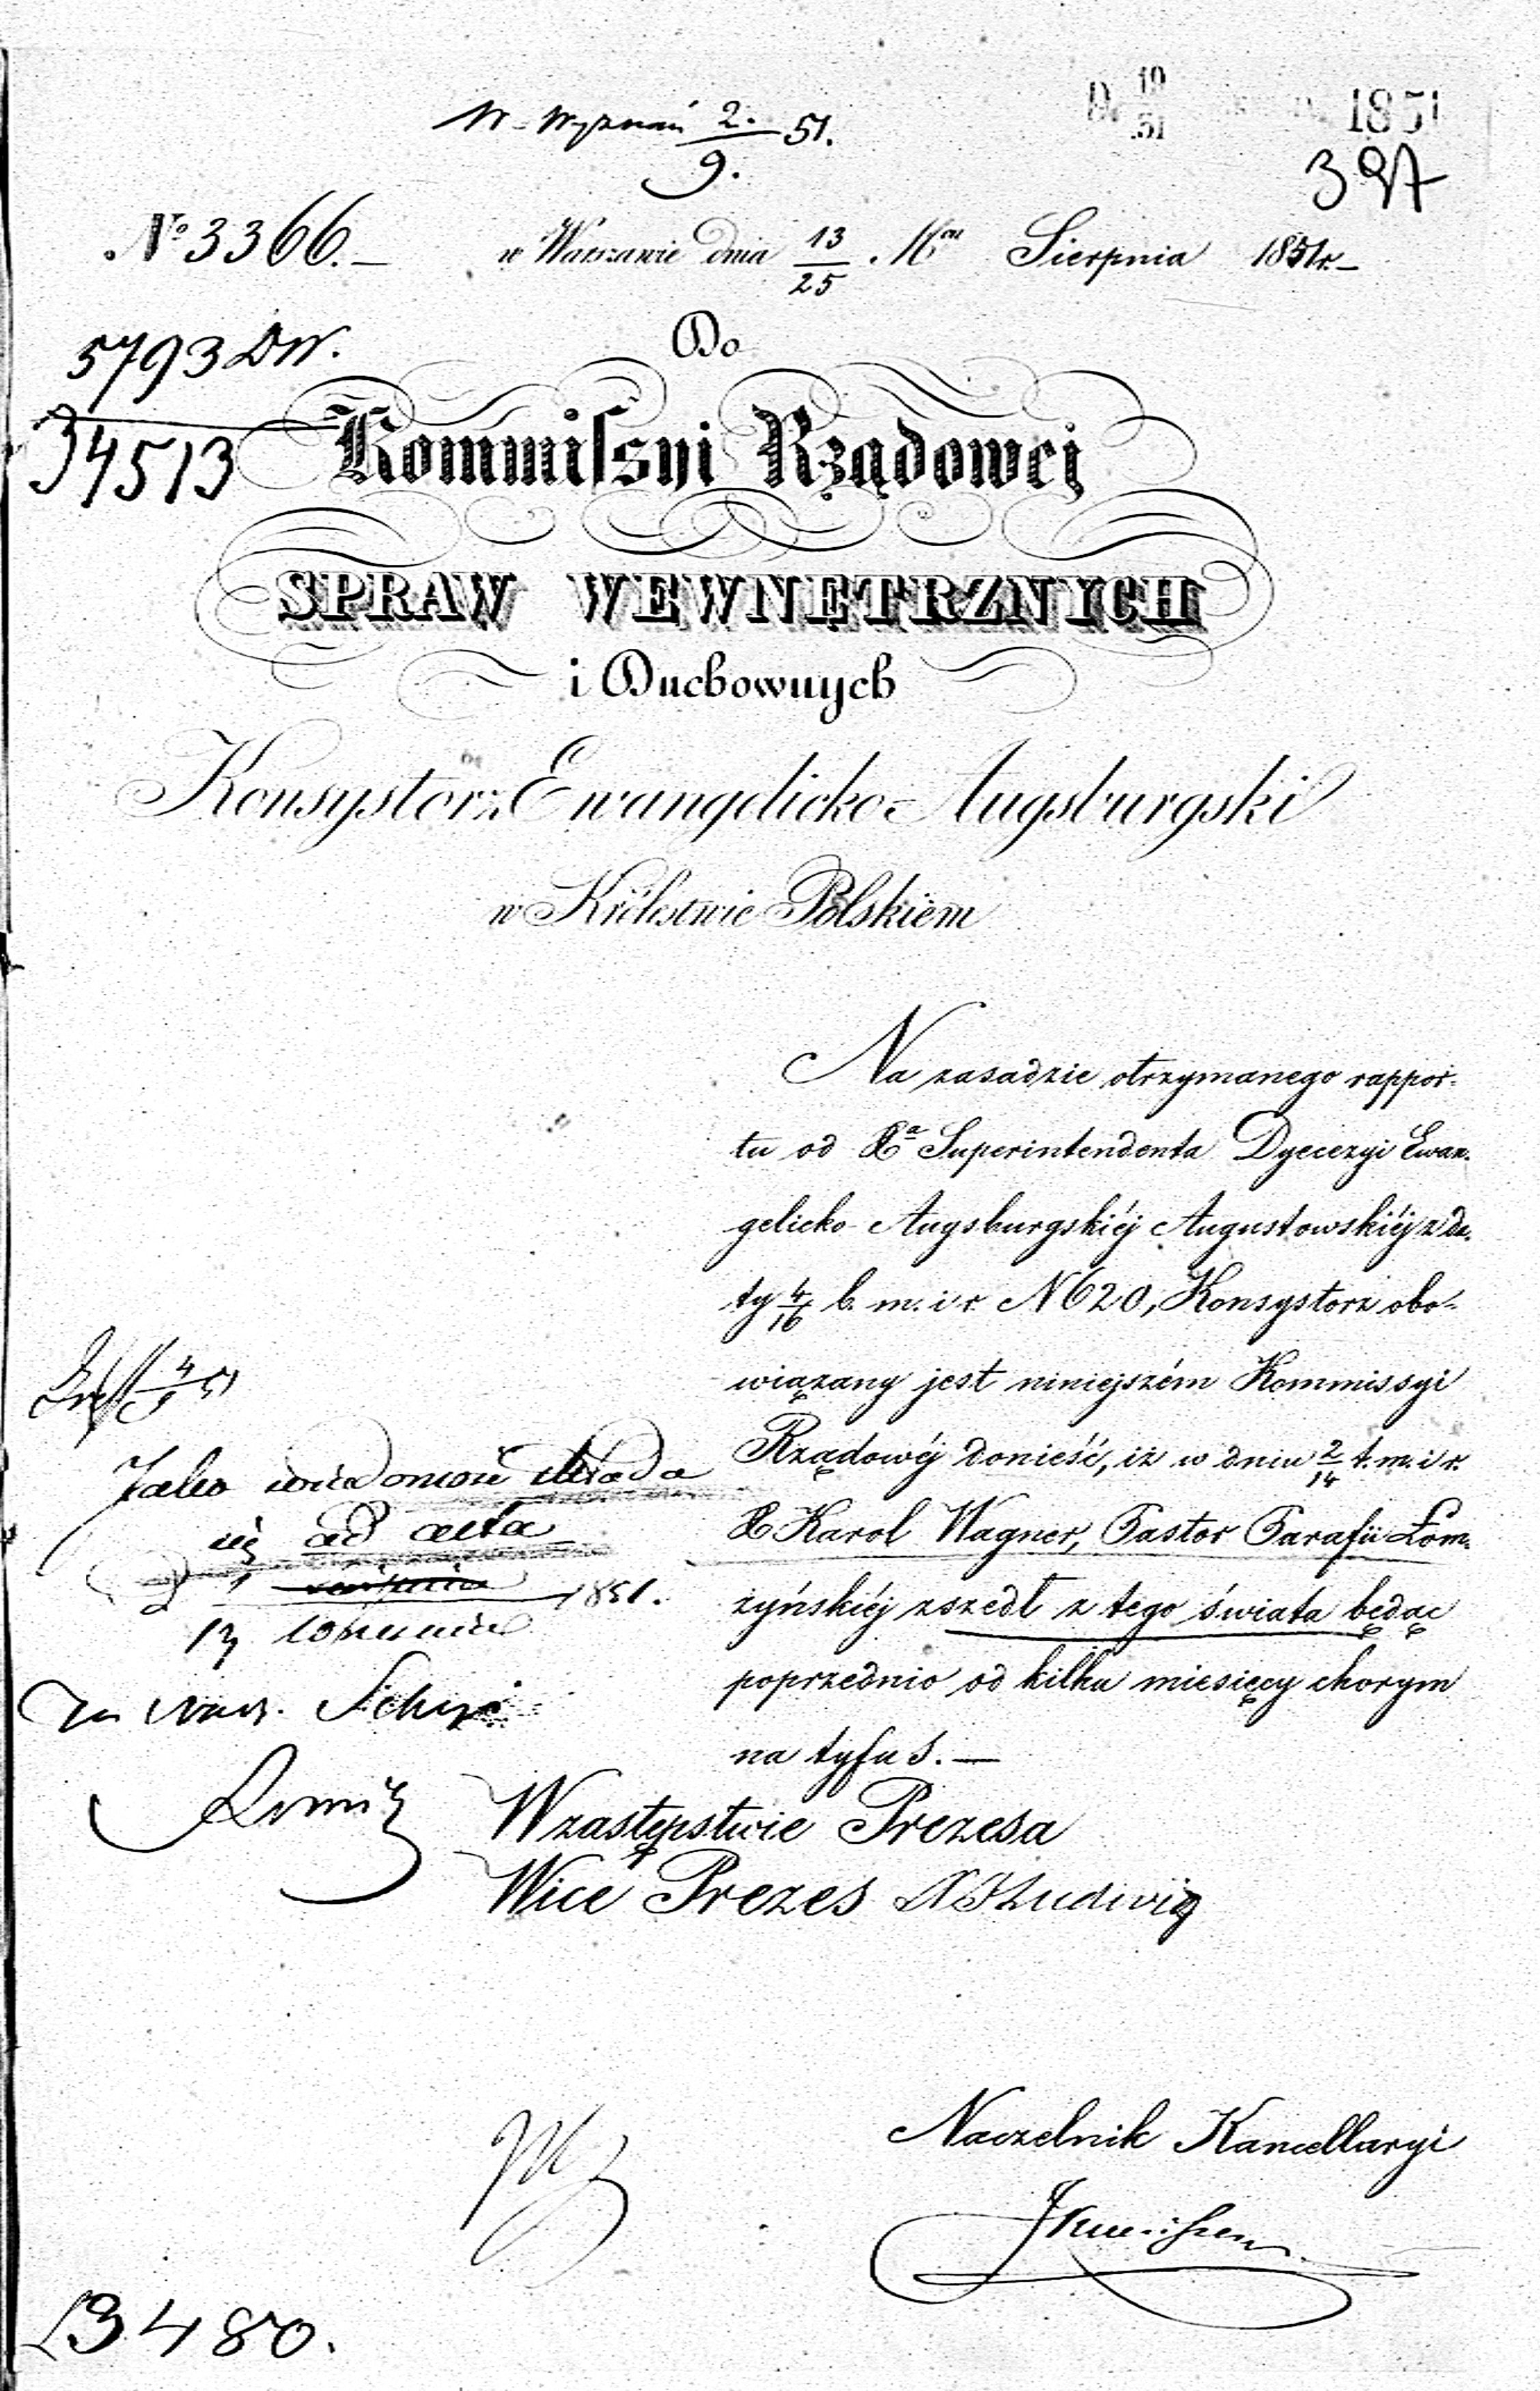 W. Wyznań 2./9. 51.
1851
397
№ 3366.—
w Warszawie dnia 13/25 Mca Sierpnia 1851 r.—
5793 DW.
34513
Do
Kommissyi Rządowej
SPRAW WEWNĘTRZNYCH
i Duchownych
Konsystorz Ewangelicko-Augsburgski
w Królestwie Polskiem
Na zasadzie otrzymanego rappor-
tu od Xa Superintendenta Dyecezyi Ewan-
gelicko-Augsburgskiéj Augustowskiéj z da-
ty 4/16 b. m. i r. N 620, Konsystorz obo-
wiązany jest niniejszém Kommissyi
Rządowéj donieść, iż w dniu 2/14 t. m. i r.
X Karol Wagner, Pastor Parafii Łom-
żyńskiéj zszedł z tego świata będąc
poprzednio od kilku miesięcy chorym
na tyfus.—
Jako wiadomość składa
się ad acta
1851.
13
W zastępstwie Prezesa
Wice Prezes Ludwig
Naczelnik Kancellaryi
13480.